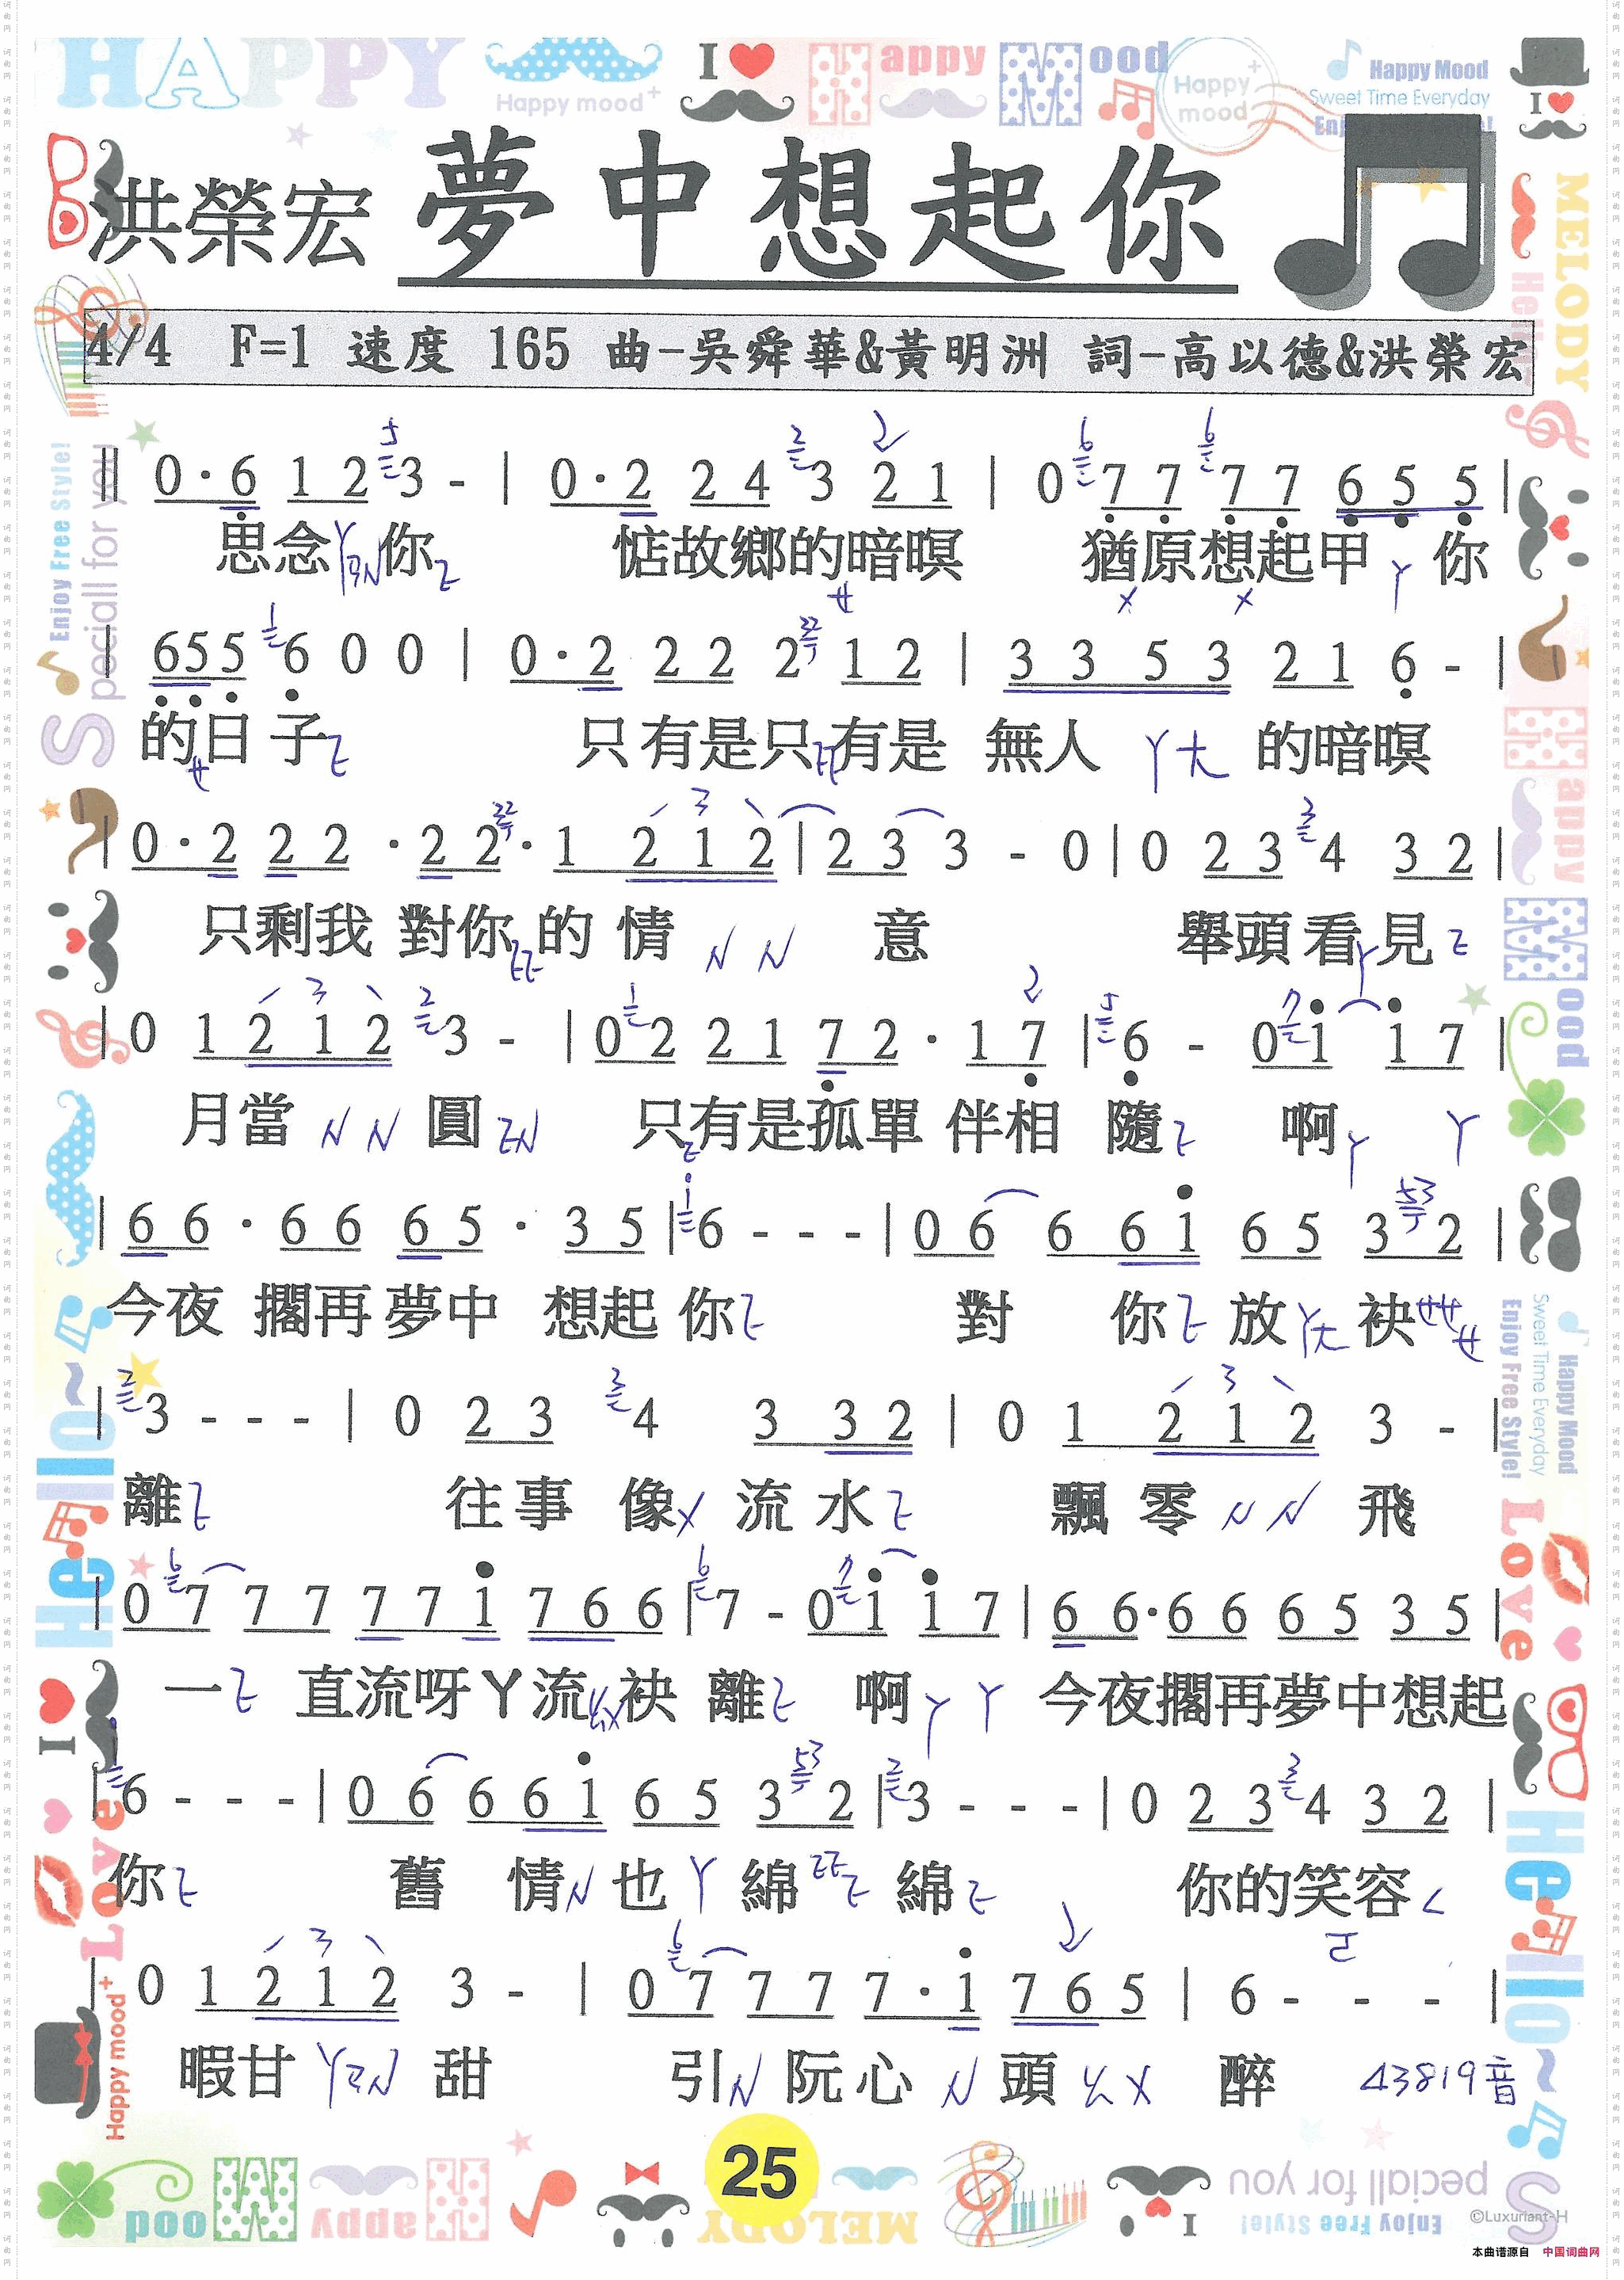 HAPPY
Happy mood+
I
Happy Mood
Happy mood+
Happy Mood
Sweet Time Everyday
I
洪榮宏 夢中想起你
4/4 F=1 速度 165 曲-吳舜華&黃明洲 詞-高以德&洪榮宏
‖ 0·6 1 2 3 - | 0·2 2 4 3 2 1 | 0 7 7 7 7 6 5 5 |
思念你 惦故鄉的暗暝 猶原想起甲ㄚ你
| 6 5 5 6 0 0 | 0·2 2 2 2 1 2 | 3 3 5 3 2 1 6 - |
的日子 只有是只有是 無人ㄚㄤ的暗暝
| 0·2 2 2 ·2 2· 1 2 1 2 | 2 3 3 - 0 | 0 2 3 4 3 2 |
只剩我 對你的情ㄣㄣ意 舉頭看見
| 0 1 2 1 2 3 - | 0 2 2 1 7 2 · 1 7 | 6 - 0 i i 7 |
月當ㄣㄣ圓 只有是孤單 伴相隨 啊ㄚㄚ
| 6 6 · 6 6 6 5 · 3 5 | 6 - - - | 0 6 6 6 i 6 5 3 2 |
今夜 擱再夢中 想起你 對 你 放 袂
| 3 - - - | 0 2 3 4 3 3 2 | 0 1 2 1 2 3 - |
離 往事 像ㄨ流水 飄零ㄣㄣ飛
| 0 7 7 7 7 7 i 7 6 6 | 7 - 0 i i 7 | 6 6·6 6 6 5 3 5 |
一 直流呀ㄚ流袂離 啊ㄚㄚ 今夜擱再夢中想起
| 6 - - - | 0 6 6 6 i 6 5 3 2 | 3 - - - | 0 2 3 4 3 2 |
你 舊 情ㄣ也ㄚ綿 綿 你的笑容
| 0 1 2 1 2 3 - | 0 7 7 7 7 · i 7 6 5 | 6 - - - |
暇甘 甜 引ㄣ阮心ㄣ頭ㄠㄨ 醉 43819音
25
MELODY
Hello~
Love
Enjoy Free Style!
Speciall for you
Happy Mood
©Luxuriant-H
本曲谱源自 中国词曲网